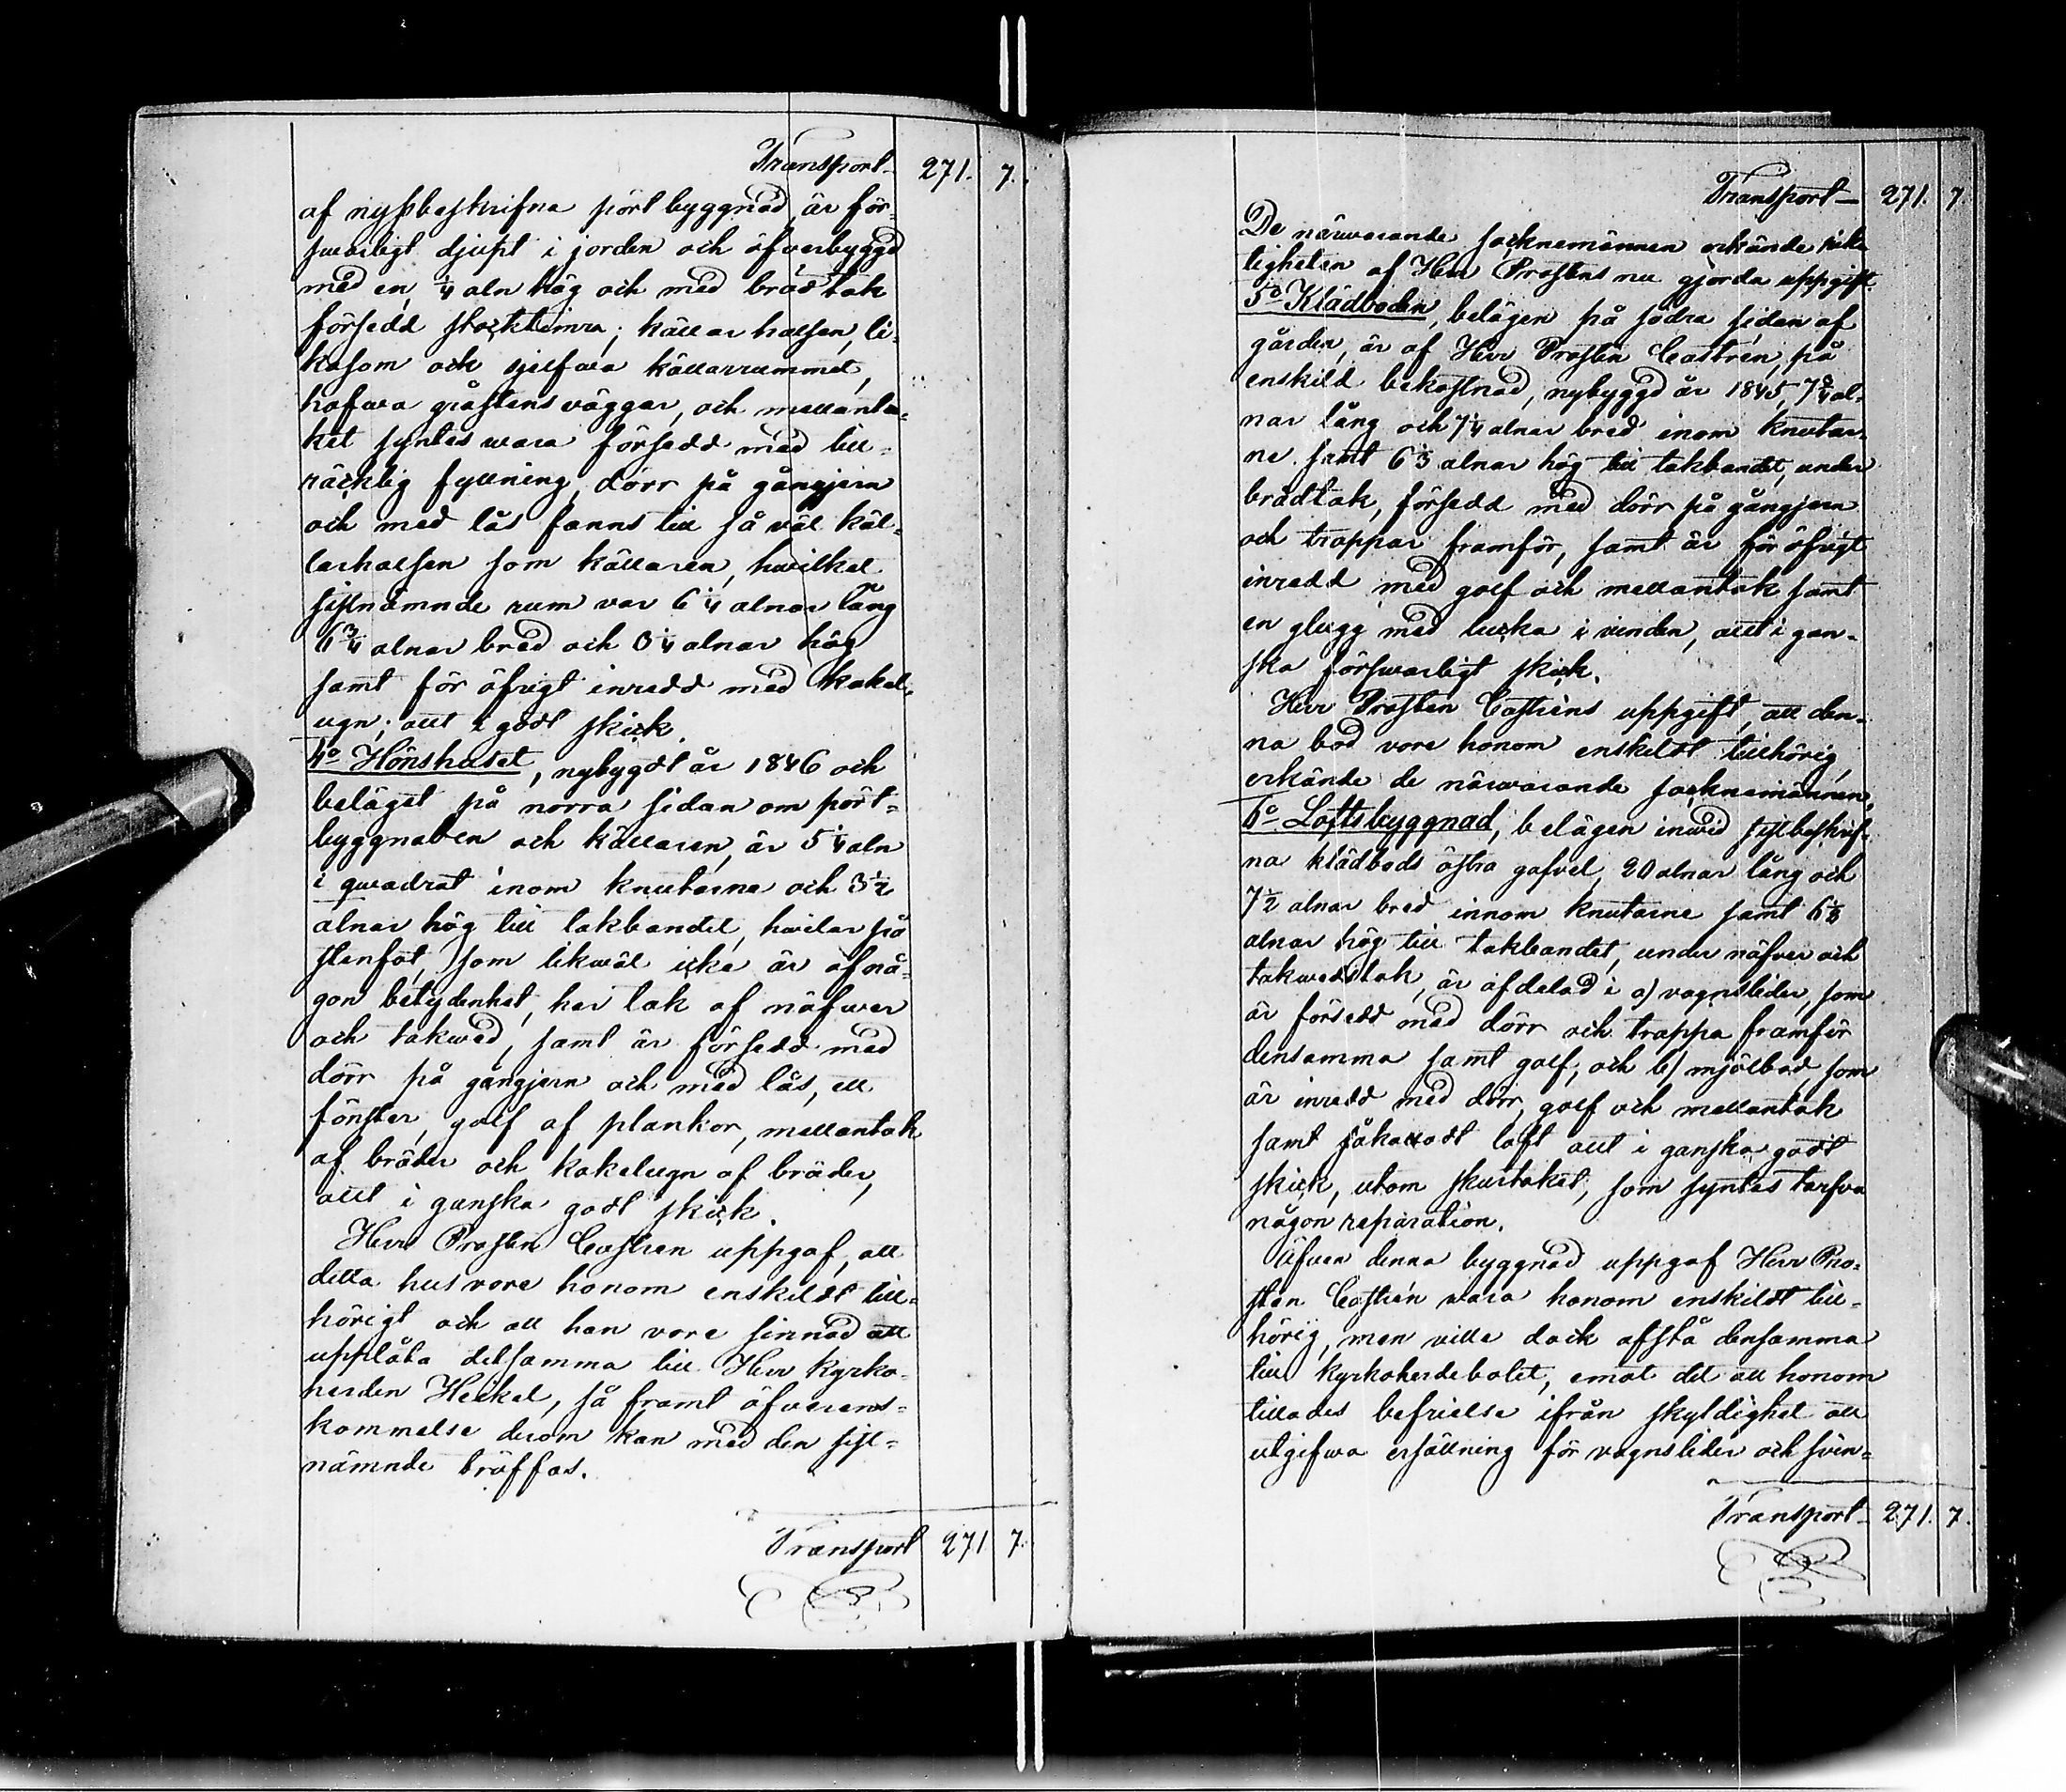 Transport 271. 7.
af nyssbeskrifna pörtbyggnad, är för-
svarligt djupt i jorden och öfverbyggd
med en, 1/4 aln hög och med brädtak
försedd stocktimra; källarhalsen, li-
kasom ock sjelfva källarrummet,
hafwa gråstensväggar, och mellanta-
ket syntes wara försedd med till-
räcklig fyllning, dörr på gångjern
och med lås fanns till så väl käl-
larhalsen som källaren, hwilket
sistnämnde rum var 6 1/4 alnar lång
6 3/4 alnar bred och 3 1/4 alnar hög
samt för öfrigt inredd med kakel-
ugn; allt i godt skick.
4o Hönshuset, nybygdt år 1846 och
beläget på norra sidan om pört-
byggnaden och källaren, är 5 1/4 aln
i quadrat inom knutarna och 3 1/2
alnar hög till takbandet, hwilar på
stenfot, som likwäl icke är af nå-
gon betydenhet, har tak af näfwer
och takwed, samt är försedd med
dörr på gångjern och med lås, ett
fönster, golf af plankor, mellantak
af bräder och kakelugn af bräder,
allt i ganska godt skick.
Herr Prosten Castren uppgaf, att
detta hus vore honom enskildt till-
hörigt och att han vore sinnad att
upplåta detsamma till Herr Kyrko-
herden Heikel, så framt öfverens-
kommelse derom kan med den sist-
nämnde träffas.
Transport 271 7.
Transport 271. 7.
De närwarande socknemännen erkände rik-
tigheten af Herr Prostens nu gjorda uppgift.
5o Klädboden, belägen på södra sidan af
gården, är af Herr Prosten Castrén, på
enskild bekostnad, nybyggd år 1845, 7 3/4 al-
nar lång och 7 1/4 alnar bred inom knutar-
ne samt 6 1/3 alnar hög till takbandet, under
brädtak, försedd med dörr på gångjern
och trappar framför, samt är för öfrigt
inredd med golf och mellantak samt
en glugg med lucka i vinden, allt i gan-
ska försvarligt skick.
Herr Prosten Castréns uppgift, att den-
na bod vore honom enskildt tillhörig,
erkände de närwarande socknemännen.
6o Loftsbyggnad, belägen inwid sistbeskrif-
na klädbods östra gafvel, 20 alnar lång och
7 1/2 alnar bred innom knutarne samt 6 1/8
alnar hög till takbandet, under näfver och
takwedstak, är afdelad i a) vagnslider, som
är försedd med dörr och trappa framför
densamma samt golf; och b) mjölbod, som
är inredd med dörr, golf och mellantak
samt såkalladt loft allt i ganska godt
skick, utom skurtaket, som syntes tarfva
någon reparation.
Äfven denna byggnad uppgaf Herr Pro-
sten Castrén vara honom enskildt till-
hörig, men ville dock afstå densamma
till kyrkoherdebolet, emot det att honom
tillades befrielse ifrån skyldighet att
utgifwa ersättning för vagnslider och svin-
Transport 271. 7.